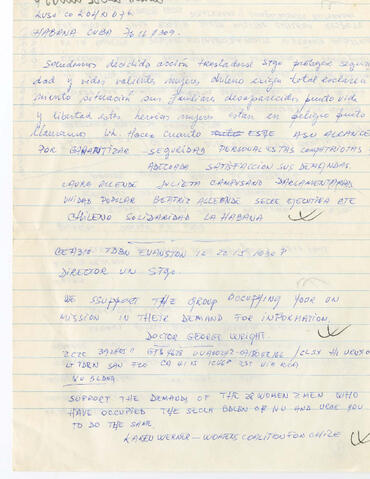 HABANA CUBA 76 16 1309.
Saludamos decidida acción trasladarse Stgo proteger seguri
dad y vidas valientes mujeres chilenas exigen total esclareci
miento situación sus familiares desaparecidos punto vida
y libertad estas heroicas mujeres están en peligro punto
llamamos Uh. Haced cuanto ESTE A SU ALCANCE
POR GARANTIZAR SEGURIDAD PERSONAL ESTAS COMPATRIOTAS
ADECUADA SATISFACCION SUS DEMANDAS.
LAURA ALLENDE JULIETA CAMPUSANO PARLAMENTARIAS
UNIDAD POPULAR BEATRIZ ALLENDE SECRE EJECUTIVA CTE
CHILENO SOLIDARIDAD LA HABANA
TDBN EVANSTON IL 22 15 1030 P
DIRECTOR UN STGO.
WE SSUPPORT THE GROUP OCCUPYING YOUR UN
MISSION IN THEIR DEMAND FOR INFORMATION.
DOCTOR GEORGE WRIGHT.
LT TDBN SAN FCO
SUPPORT THE DEMANDS OF THE WOMEN MEN WHO
HAVE OCCUPIED THE SECLA BDLEN OF NU AND URGE YOU
TO DO THE SAME.
KAREN WERNER - WOMENS COALITION FOR CHILE